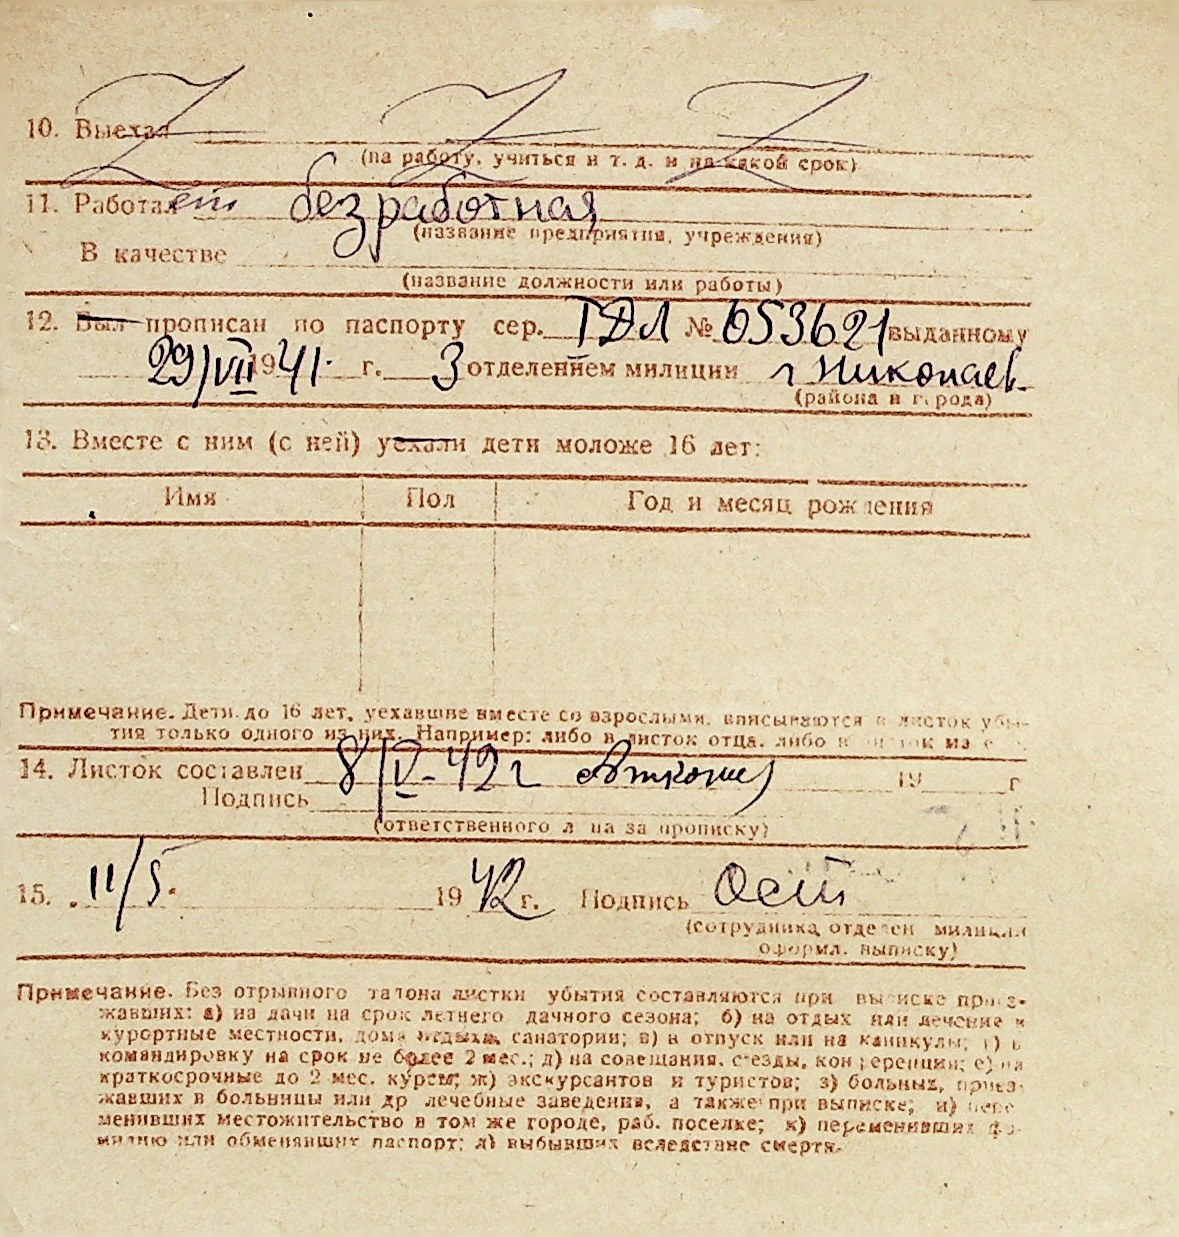 10. Выехал
(на работу, учиться и т. д. и на какой срок)
11. Работает безработная
(название предприятия, учреждения)
В качестве
(название должности или работы)
12. Был прописан по паспорту сер. ТДЛ № 653621 выданному
29/VII 1941 г. 3 отделением милиции г Николаев
(района и города)
13. Вместе с ним (с ней) уехали дети моложе 16 лет:
Имя Пол Год и месяц рождения
Примечание. Дети до 16 лет, уехавшие вместе со взрослыми, вписываются в листок убы-
тия только одного из них. Например: либо в листок отца, либо в листок
14. Листок составлен 8/V-42 г 19 г
Подпись
(ответственного лица за прописку)
15. 11/5. 1942 г. Подпись
(сотрудника отделен милиции
оформл. выписку)
Примечание. Без отрывного талона листки убытия составляются при выписке приез-
жавших: а) на дачи на срок летнего дачного сезона; б) на отдых или лечение в
курортные местности, дома отдыха, санатории; в) в отпуск или на каникулы; г) в
командировку на срок не более 2 мес.; д) на совещания, съезды, конференции; е) на
краткосрочные до 2 мес. курсы; ж) экскурсантов и туристов; з) больных, приез-
жавших в больницы или др лечебные заведения, а также при выписке; и) пере-
менивших местожительство в том же городе, раб. поселке; к) переменивших фа-
милию или обменявших паспорт; л) выбывших вследствие смерти.